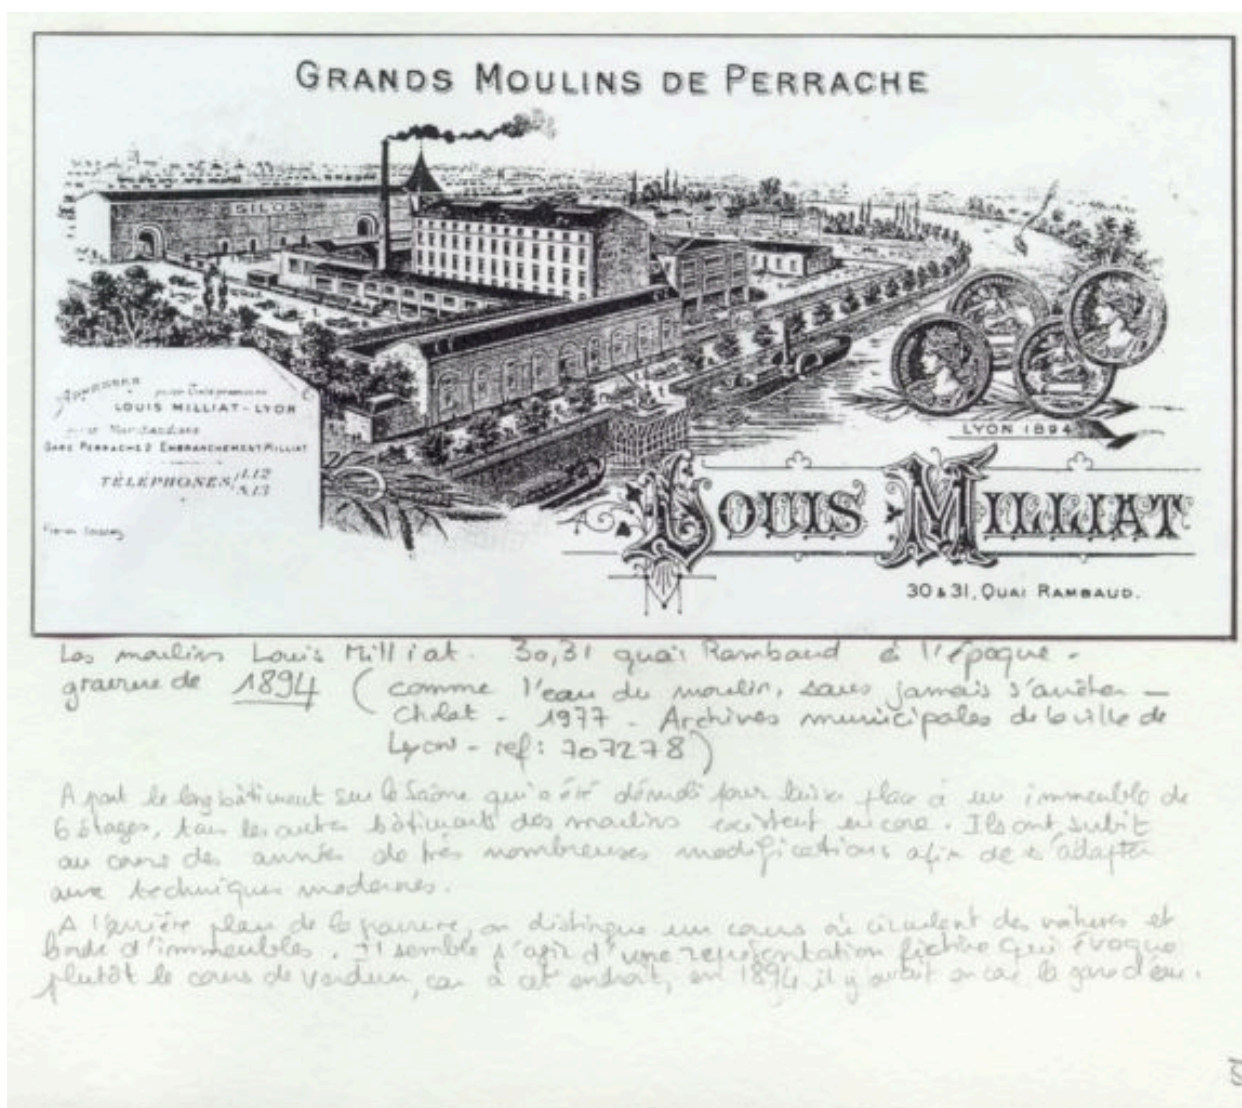 GRANDS MOULINS DE PERRACHE
SILOS
ADRESSES
pour Télégrammes
LOUIS MILLIAT-LYON
pour Marchandises
GARE PERRACHE 2 EMBRANCHEMENT MILLIAT
TÉLÉPHONES
LYON 1894
LOUIS MILLIAT
30 & 31, QUAI RAMBAUD.
Les moulins Louis Milliat. 30,31 quai Rambaud à l'époque.
gravure de 1894 (comme l'eau du moulin, sans jamais s'arrêter -
Cholat - 1977 - Archives municipales de la ville de
Lyon - ref: 707278)
A part le long bâtiment sur la Saône qui a été démoli pour laisser place à un immeuble de
6 étages, tous les autres bâtiments des moulins existent encore. Ils ont subit
au cours des années de très nombreuses modifications afin de s'adapter
aux techniques modernes.
A l'arrière plan de la gravure, on distingue un cours où circulent des voitures et
bordé d'immeubles. Il semble s'agir d'une représentation fictive qui évoque
plutôt le cours de Verdun, car à cet endroit, en 1894 il y avait encore la gare d'eau.